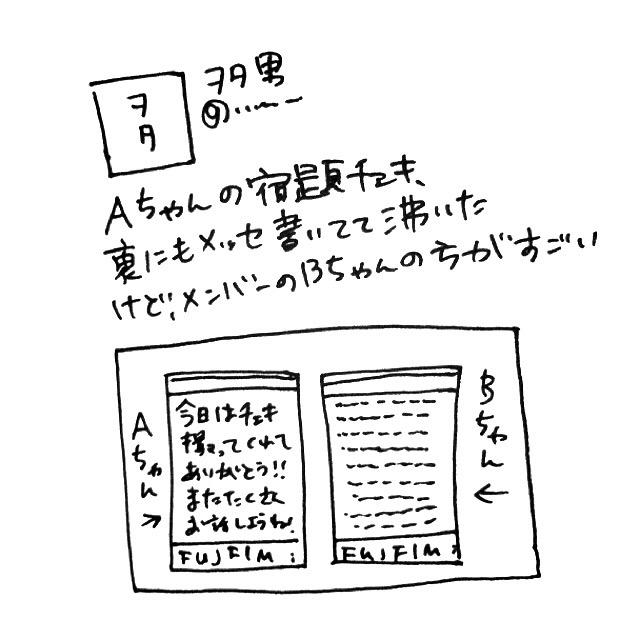 ヲタ
ヲタ男
@……
Aちゃんの宿題チェキ、
裏にもメッセ書いてて沸いた
けど、メンバーのBちゃんの方がすごい
Aちゃん→
今日はチェキ
撮ってくれて
ありがとう!!
またたくさん
お話しようね!
FUJFIM
Bちゃん
←
FUJFIM